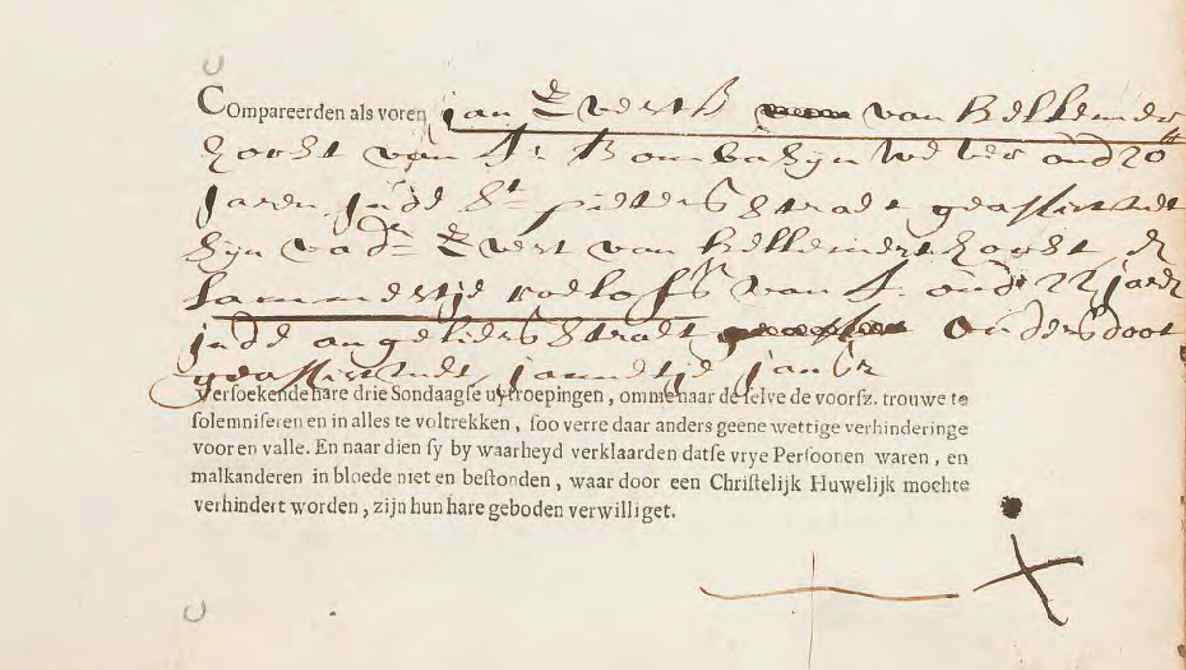 COmpareerden als voren jan Evertsz van Hellemers
horst van A. Bombasijn wever oud 20
jaren, in de St pieterstraat geassisteert
sijn vader Evert van Hellemershorst &
lammertje roelofs van A. oud 22 jaer
in de angeliersstraat ouders doot
geassisteert jannetje jans
Versoekende hare drie Sondaagse uytroepingen, omme naar de selve de voorsz. trouwe te
solemniseren en in alles te voltrekken, soo verre daar anders geene wettige verhinderinge
voor en valle. En naar dien sy by waarheyd verklaarden datse vrye Persoonen waren, en
malkanderen in bloede niet en bestonden, waar door een Christelijk Huwelijk mochte
verhindert worden, zijn hun hare geboden verwilliget.